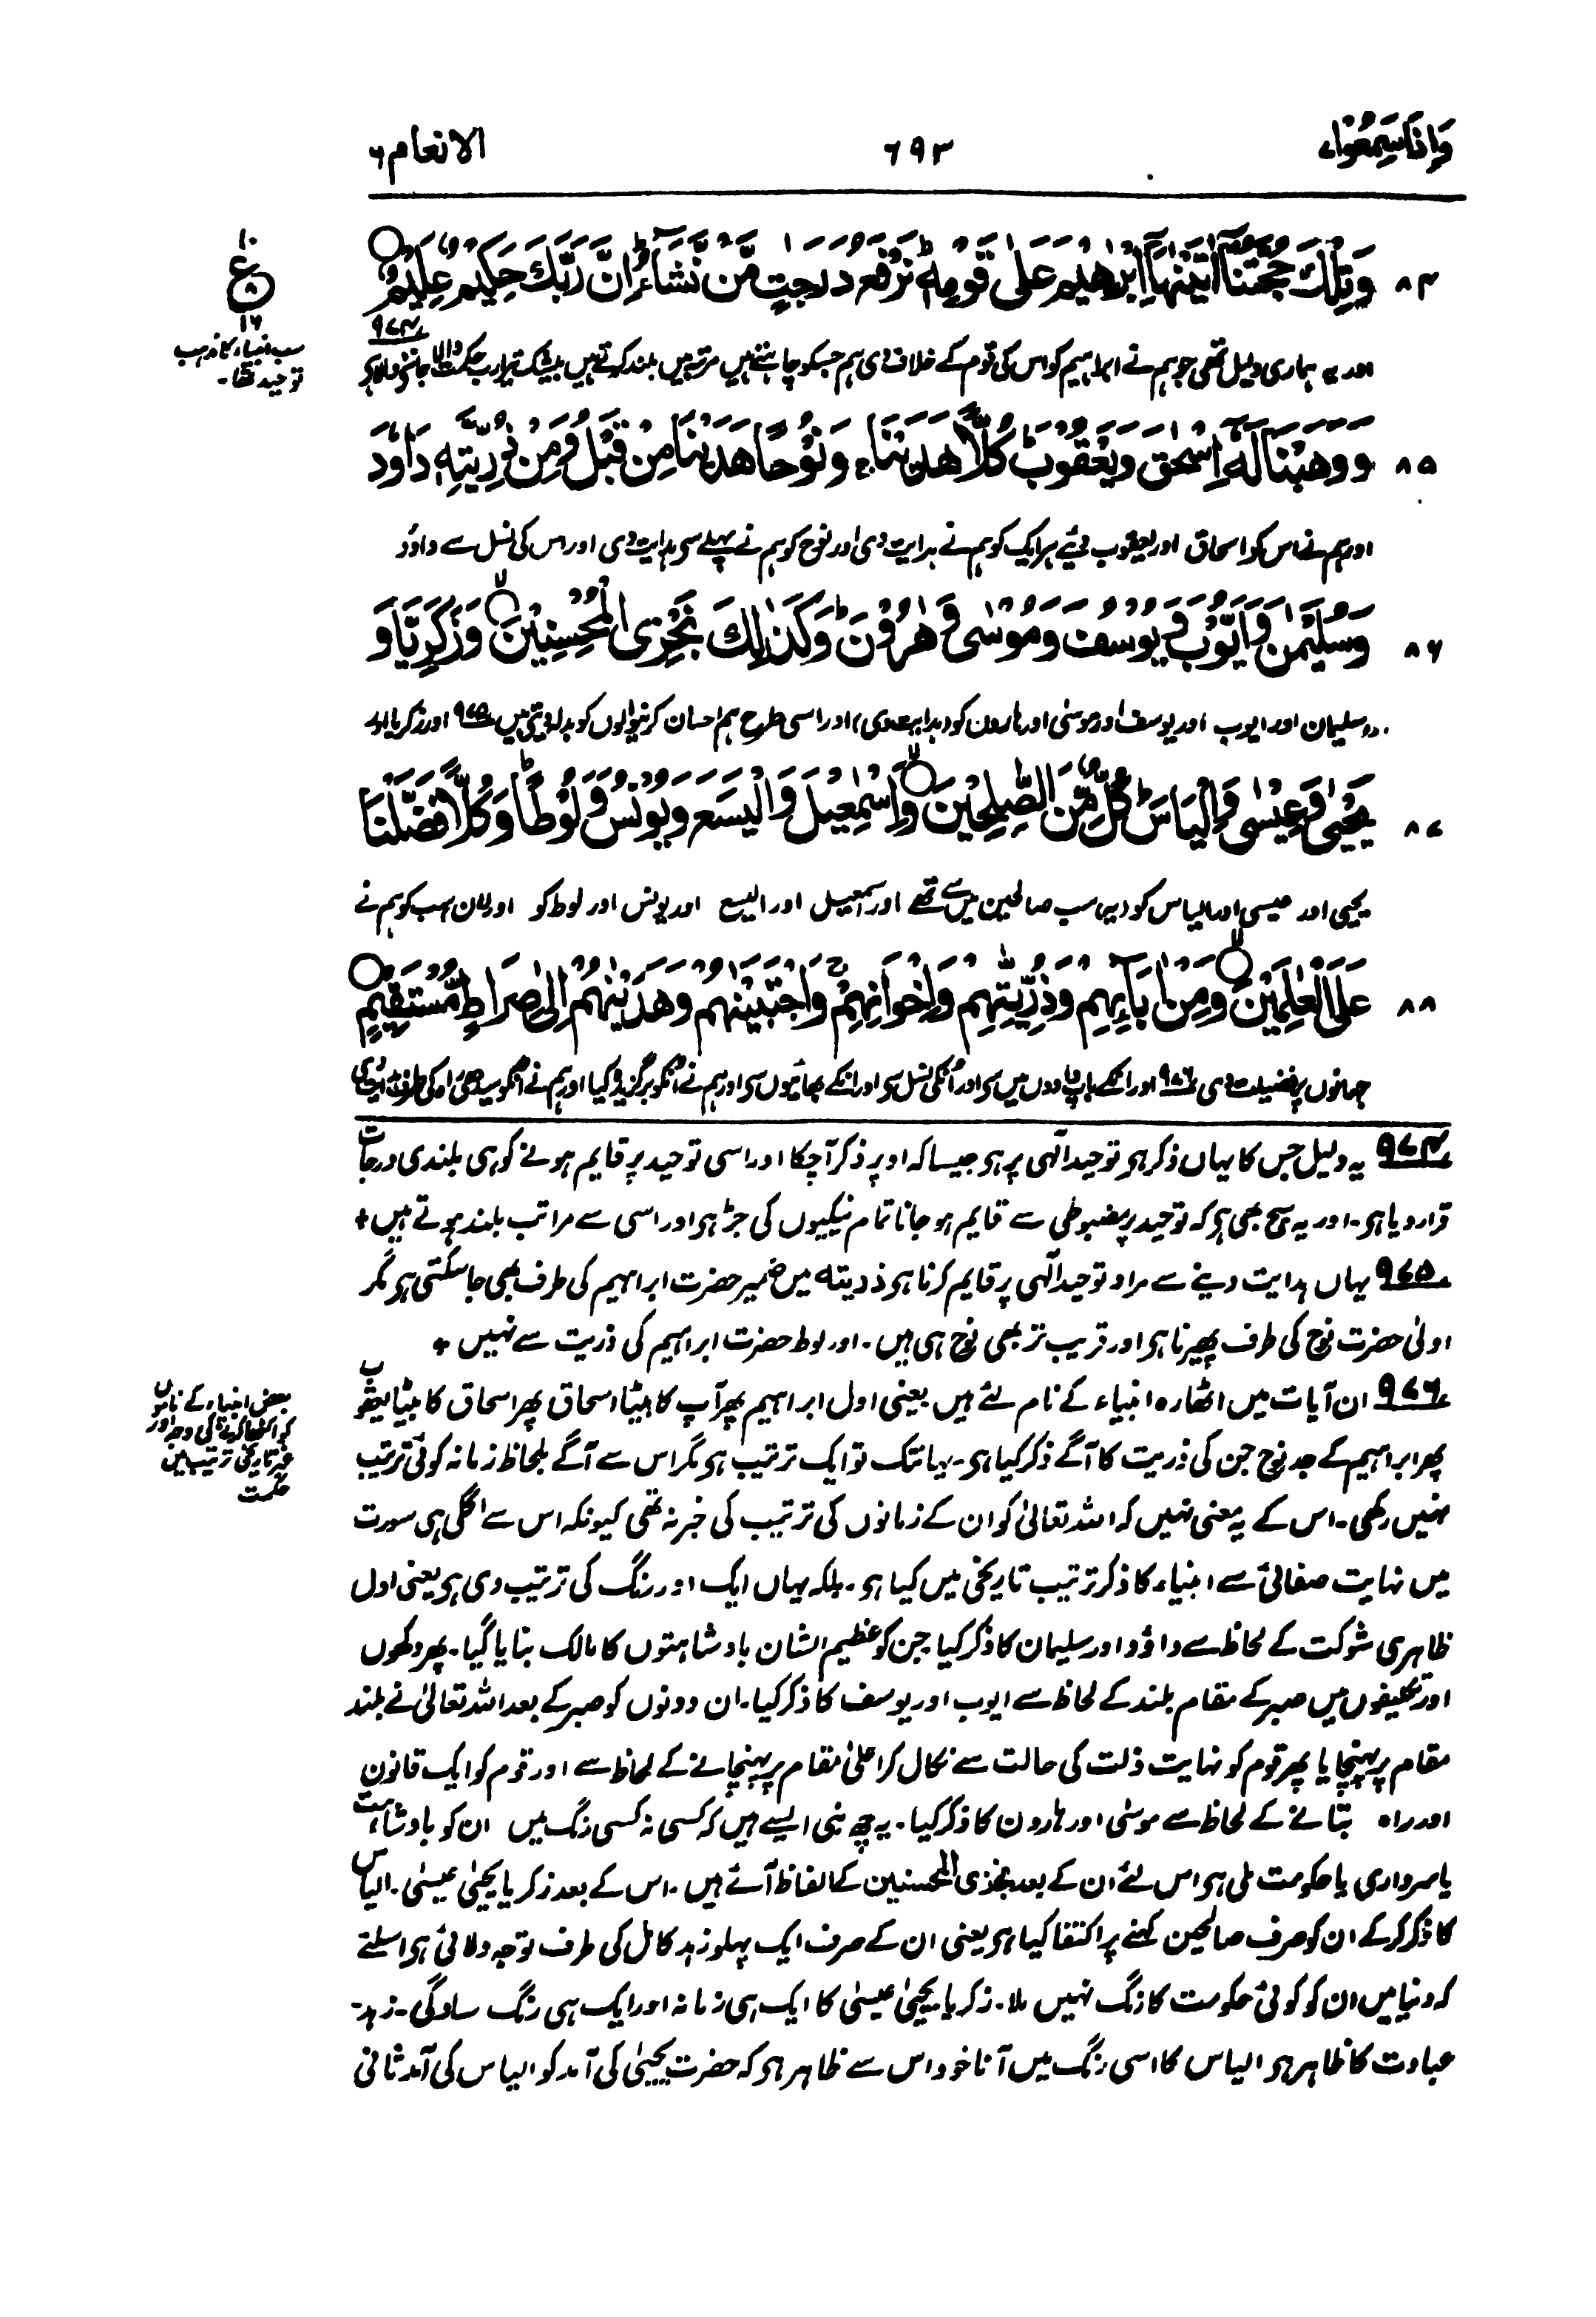 وَإِذَا سَمِعُوْا۷
۶۹۳
الانعام ۶
۸۴ وَتِلْكَ حُجَّتُنَآ اٰتَيْنٰهَآ اِبْرٰهِيْمَ عَلٰى قَوْمِهٖ ؕ نَرْفَعُ دَرَجٰتٍ مَّنْ نَّشَآءُ ؕ اِنَّ رَبَّكَ حَكِيْمٌ عَلِيْمٌ ○
۱۰
ع
۸
۱۶
اور یہ ہماری دلیل تھی جو ہم نے ابراہیم کو اس کی قوم کے خلاف دی ہم جسکو چاہتے ہیں مرتبہ میں بلند کرتے ہیں بیشک تیرا رب حکمت والا جاننے والا ہی ۹۷۴
سب انبیاء کا مذہب
توحید تھا۔
۸۵ وَوَهَبْنَا لَهٗٓ اِسْحٰقَ وَيَعْقُوْبَ ؕ كُلًّا هَدَيْنَا ۚ وَنُوْحًا هَدَيْنَا مِنْ قَبْلُ وَمِنْ ذُرِّيَّتِهٖ دَاوٗدَ
اور ہم نے اس کو اسحاق اور یعقوب دیئے ہر ایک کو ہم نے ہدایت دی اور نوح کو ہم نے پہلے سی ہدایت دی اور اس کی نسل سے داؤد
۸۶ وَسُلَيْمٰنَ وَاَيُّوْبَ وَيُوْسُفَ وَمُوْسٰى وَهٰرُوْنَ ؕ وَكَذٰلِكَ نَجْزِى الْمُحْسِنِيْنَ ○ وَزَكَرِيَّا وَ
سلیمان اور ایوب اور یوسف اور موسٰی اور ہارون کو (ہدایت دی) اور اسی طرح ہم احسان کرنیوالوں کو بدلہ دیتے ہیں ۹۷۵ اور زکریا اور
۸۷ يَحْيٰى وَعِيْسٰى وَاِلْيَاسَ ؕ كُلٌّ مِّنَ الصّٰلِحِيْنَ ○ وَاِسْمٰعِيْلَ وَالْيَسَعَ وَيُوْنُسَ وَلُوْطًا ؕ وَكُلًّا فَضَّلْنَا
یحیی اور عیسی اور الیاس کو (یہ) سب صالحین میں سے تھے اور اسمعیل اور الیسع اور یونس اور لوط کو اور (ان) سب کو ہم نے
۸۸ عَلَى الْعٰلَمِيْنَ ○ وَمِنْ اٰبَآئِهِمْ وَذُرِّيّٰتِهِمْ وَاِخْوَانِهِمْ ۚ وَاجْتَبَيْنٰهُمْ وَهَدَيْنٰهُمْ اِلٰى صِرَاطٍ مُّسْتَقِيْمٍ ○
جہانوں پر فضیلت دی ۹۷۶ اور انکے باپ دادوں میں سی اور اُنکی نسل سی اور انکے بھائیوں سی اور ہم نے اُنکو برگزیدہ کیا اور ہم نے اُنکو سیدھی راہ کی طرف ہدایت دی
۹۷۴ یہ دلیل جس کا یہاں ذکر ہی توحید الٰہی پر ہی جیسا کہ اوپر ذکر آچکا اور اسی توحید پر قایم ہونے کو ہی بلندی درجات
قرار دیا ہی۔ اور یہ سچ بھی ہی کہ توحید پر مضبوطی سے قایم ہو جانا تمام نیکیوں کی جڑ ہی اور اسی سے مراتب بلند ہوتے ہیں +
۹۷۵ یہاں ہدایت دینے سے مراد توحید الٰہی پر قایم کرنا ہی ذریتہ میں ضمیر حضرت ابراہیم کی طرف بھی جا سکتی ہی مگر
اولیٰ حضرت نوح کی طرف پھیرنا ہی اور قریب تر بھی نوح ہی ہیں۔ اور لوط حضرت ابراہیم کی ذریت سے نہیں +
۹۷۶ ان آیات میں اٹھارہ انبیاء کے نام لئے ہیں یعنی اول ابراہیم پھر آپ کا بیٹا اسحاق پھر اسحاق کا بیٹا یعقوب
بعض انبیاء کے ناموں
کو اکٹھا کرنے کی وجہ اور
غیر تاریخی ترتیب میں
حکمت
پھر ابراہیم کے جد نوح جن کی ذریت کا آگے ذکر کیا ہی۔ یہانتک تو ایک ترتیب ہی مگر اس سے آگے بلحاظ زمانہ کوئی ترتیب
نہیں رکھی۔ اس کے یہ معنی نہیں کہ اللہ تعالیٰ کو ان کے زمانوں کی ترتیب کی خبر نہ تھی کیونکہ اس سے اگلی ہی سورت
میں نہایت صفائی سے انبیاء کا ذکر ترتیب تاریخی میں کیا ہی۔ بلکہ یہاں ایک اور رنگ کی ترتیب دی ہی یعنی اول
ظاہری شوکت کے لحاظ سے داؤد اور سلیمان کا ذکر کیا جن کو عظیم الشان بادشاہتوں کا مالک بنایا گیا۔ پھر دکھوں
اور تکلیفوں میں صبر کے مقام بلند کے لحاظ سے ایوب اور یوسف کا ذکر کیا۔ ان دونوں کو صبر کے بعد اللہ تعالیٰ نے بلند
مقام پر پہنچایا پھر قوم کو نہایت ذلت کی حالت سے نکال کر اعلیٰ مقام پر پہنچانے کے لحاظ سے اور قوم کو ایک قانون
اور راہ بتانے کے لحاظ سے موسٰی اور ہارون کا ذکر کیا۔ یہ چھ نبی ایسے ہیں کہ کسی نہ کسی رنگ میں ان کو بادشاہت
یا سرداری یا حکومت ملی ہی اس لئے ان کے بعد نجزی المحسنین کے الفاظ آئے ہیں۔ اس کے بعد زکریا یحییٰ عیسٰی۔ الیاس
کا ذکر کر کے ان کو صرف صالحین کہنے پر اکتفا کیا ہی یعنی ان کے صرف ایک پہلو زہد کامل کی طرف توجہ دلائی ہی اسلئے
کہ دنیا میں ان کو کوئی حکومت کا رنگ نہیں ملا۔ زکریا یحییٰ عیسٰی کا ایک ہی زمانہ اور ایک ہی رنگ سادگی۔ زہد۔
عبادت کا ظاہر ہی الیاس کا اسی رنگ میں آنا خود اس سے ظاہر ہی کہ حضرت یحییٰ کی آمد کو الیاس کی آمد ثانی